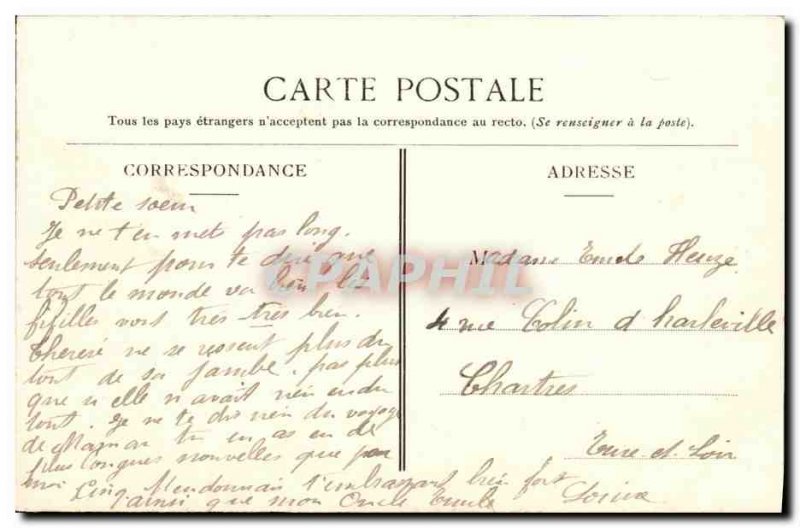 CARTE POSTALE
Tous les pays étrangers n'acceptent pas la correspondance au recto. (Se renseigner à la poste).
CORRESPONDANCE
Petite soeur
Je ne t'en mets pas long.
seulement pour te dire que
tout le monde va bien les
fifilles vont très très bien.
Thérèse ne se ressent plus du
tout de sa jambe, pas plus
que si elle n'avait rien eu du
tout. Je ne te dis rien du voyage
de Maman tu en as eu de
plus longues nouvelles que par
moi t'embrassant bien fort
ainsi que mon Oncle Emile
ADRESSE
Madame Emile Heuzé
4 rue Colin d'Harleville
Chartres
Eure et Loir
CPAPHIL